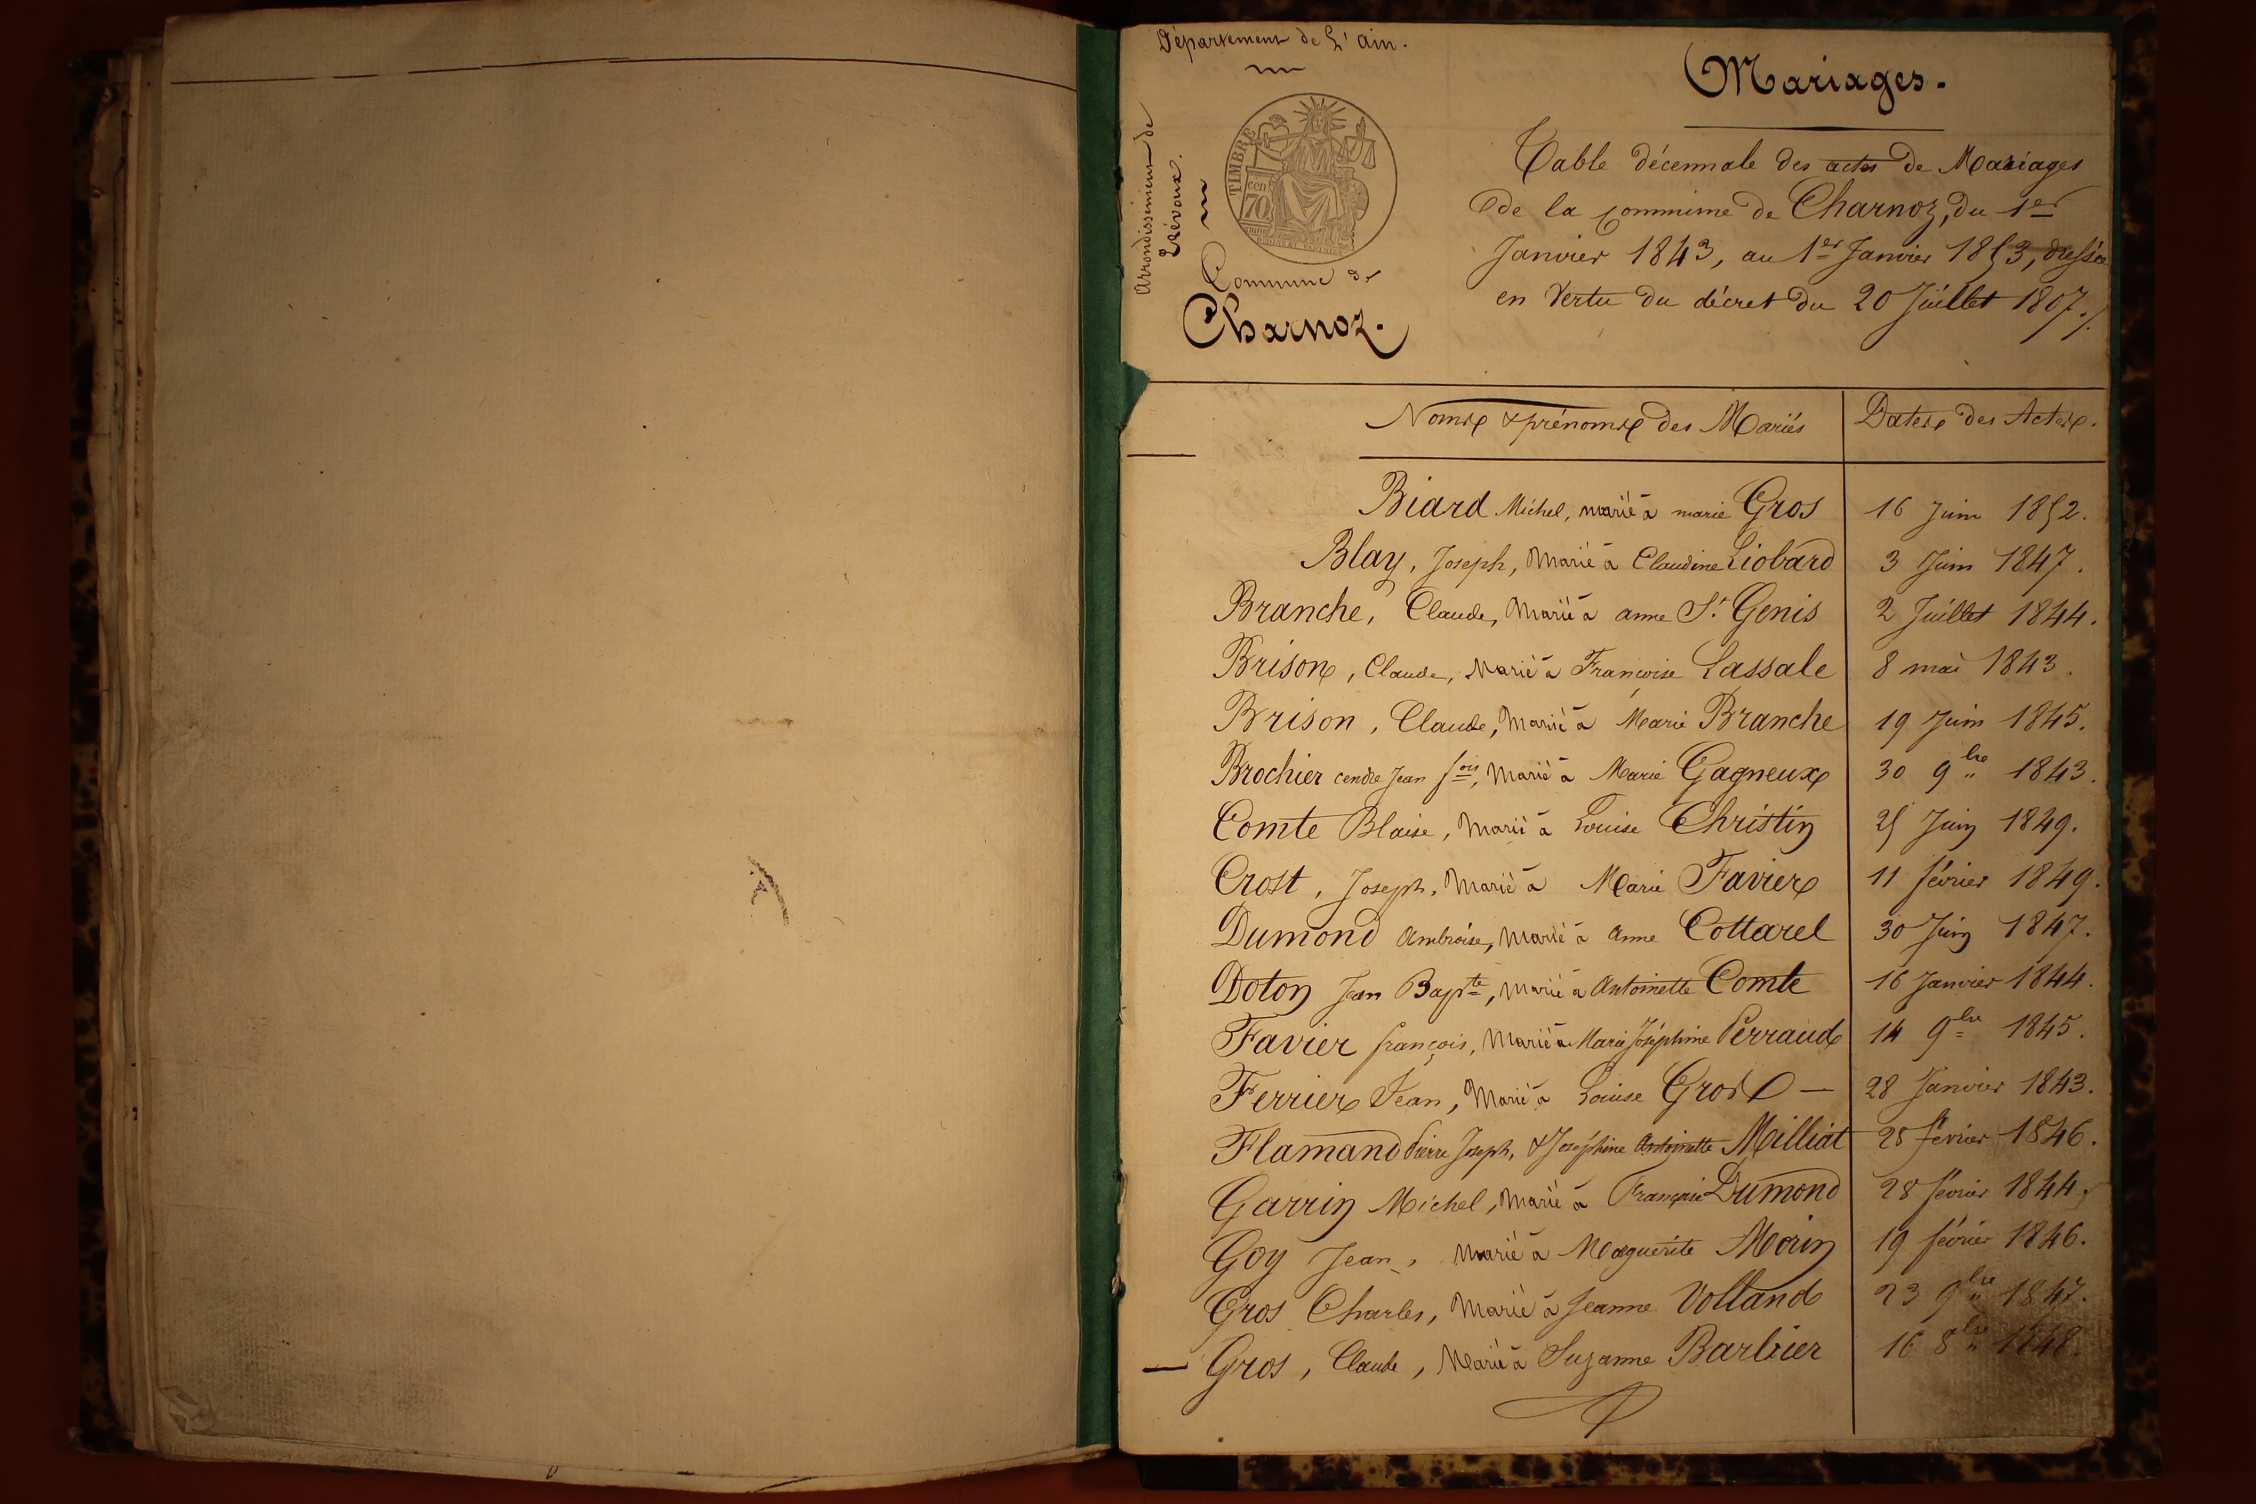 Département de L'ain.
Arrondissement de
Trévoux.
TIMBRE
70
Commune de
Charnoz.
Mariages.
Table décennale des actes de Mariages
de la commune de Charnoz, du 1er
Janvier 1843, au 1er Janvier 1853, dressée
en Vertu du décret du 20 Juillet 1807./.
Noms & prénoms des Mariés Dates des Actes.
Biard Michel, marié à marie Gros 16 Juin 1852.
Blay, Joseph, Marié à Claudine Liobard 3 Juin 1847.
Branche, Claude, Marié à anne St. Genis 2 Juillet 1844.
Brison, Claude, Marié à Françoise Lassale 8 mai 1843.
Brison, Claude, Marié à Marie Branche 19 Juin 1845.
Brochier cendre Jean fois, Marié à Marie Gagneux 30 9bre 1843.
Comte Blaise, Marié à Louise Christin 25 Juin 1849.
Crost, Joseph, Marié à Marie Favier 11 février 1849.
Dumond Ambroise, Marié à Anne Cottarel 30 Juin 1847.
Doton Jean Bapte, Marié à Antoinette Comte 16 Janvier 1844.
Favier françois, Marié à Marie Joséphine Perraud 14 9bre 1845.
Ferrier Jean, Marié à Louise Gros — 28 Janvier 1843.
Flamand Pierre Joseph, & Joséphine Antoinette Milliat 28 février 1846.
Garrin Michel, Marié à Françoise Dumond 28 février 1844.
Goy Jean, Marié à Marguerite Morin 19 février 1846.
Gros Charles, Marié à Jeanne Volland 23 9bre 1847.
— Gros, Claude, Marié à Suzanne Barbier 16 8bre 1848.